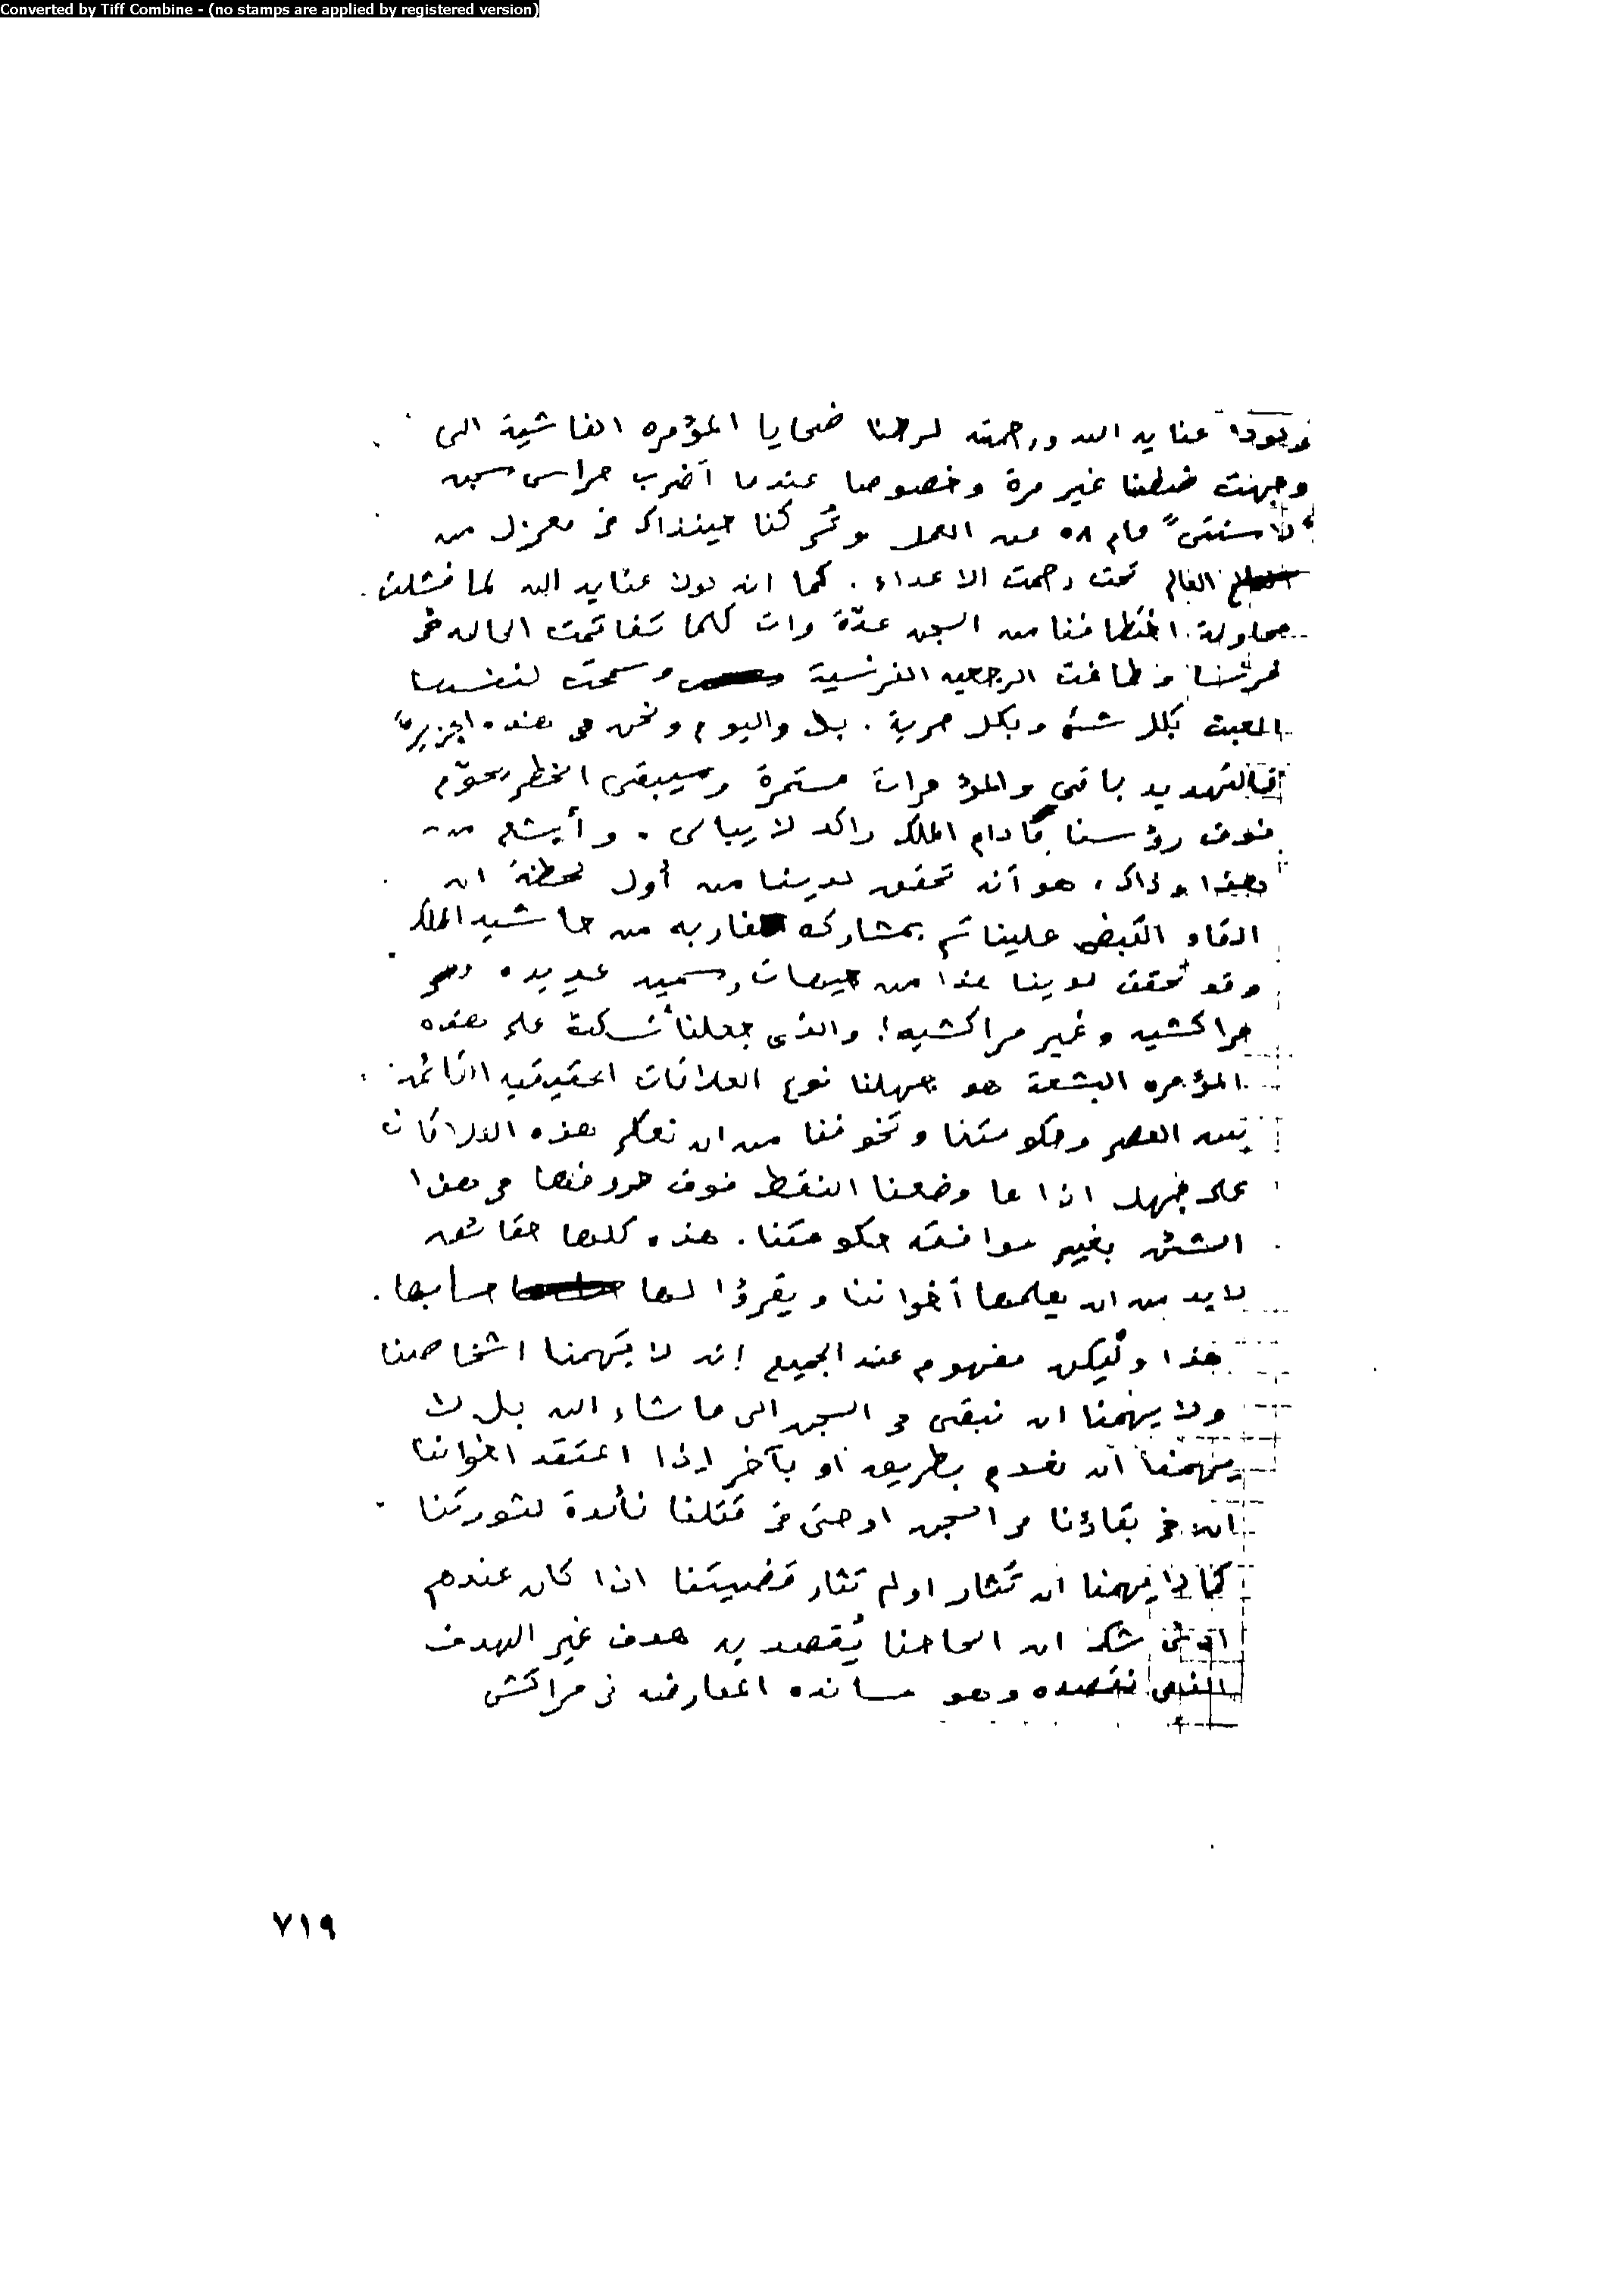 Converted by Tiff Combine - (no stamps are applied by registered version)
ولولا عناية الله ورحمته لرحنا ضحايا المؤمره الفاشية التى
وجهت ضدنا غير مرة وخصوصا عندما أضرب حراس سجن
"لاسنتى" عام ٥٨ عن العمل وتُركنا حينذاك فى معزل من
العالم تحت رحمت الاعداء . كما انه لولا عناية الله لما فشلت
محاولة اختطافنا من السجن عدّة مرات كلما تفاقمت الحاله فى
فرنسا وطاغت الرجعيه الفرنسية وسمحت لنفسها
العبث بكل شئ وبكل حرية . بل واليوم ونحن فى هذه الجزيرة
فالتهديد باقى والمؤمرات مستمرة وسيبقى الخطر يحوّم
فوق رؤسنا مادام الملك راكد لا يبالى . وأبشع من
هذا وذاك ، هو أنه تحقق لدينا من أول لحظة ان
القاء القبض علينا تم بمشاركه مغاربه من حاشية الملك
وقد تحقق لدينا هذا من جهات رسميه عديده
مراكشيه وغير مراكشيه! والذى جعلنا نسكت على هذه
المؤمره البشعة هو جهلنا نوع العلاقات الحقيقيه القائمة
بين القصر وحكومتنا وتخوفنا من ان نعكر هذه العلاقات
على جهل اذا ما وضعنا النقط فوق حروفها فى هذا
الشئ بغير موافقة حكومتنا . هذه كلها حقائق
لابد من ان يعلمها أخواننا ويقرؤا لها حسابها .
هذا وليكن مفهوم عند الجميع إنه لا يهمنا اشخاصنا
ولا يهمنا ان نبقى فى السجن الى ما شاء الله بل لا
يهمنا أن نعدم بطريق او بآخر اذا اعتقد اخواننا
ان فى بقاؤنا فى السجن او حتى فى قتلنا فائدة لثورتنا
كما لا يهمنا ان تثار او لم تثار قضيتنا اذا كان عندهم
ادنى شك ان الحاحنا يُقصد به هدف غير الهدف
الذى نقصده وهو مسانده المعارضه فى مراكش
٧١٩